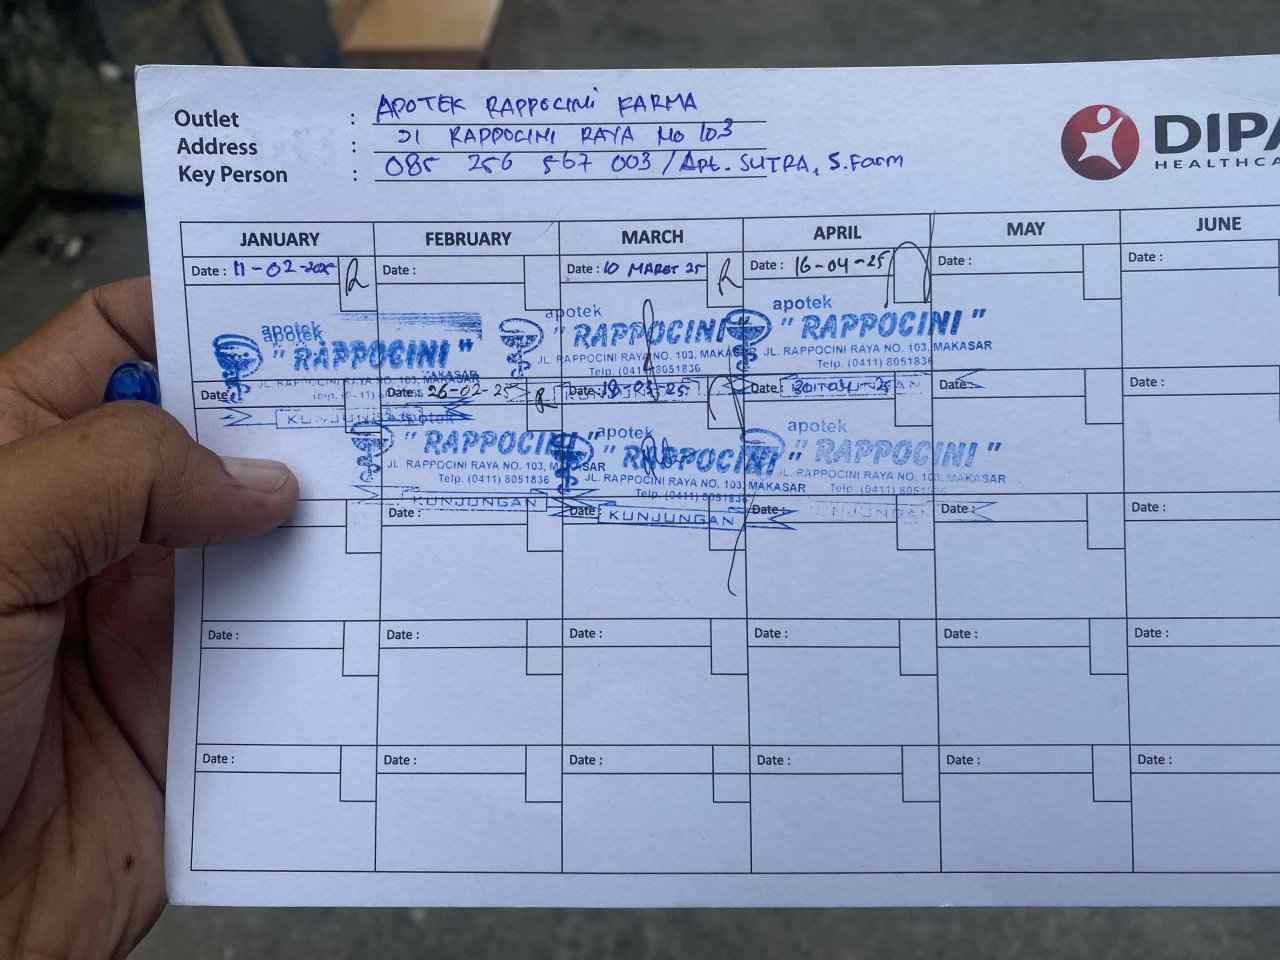 Outlet : APOTEK RAPPOCINI FARMA
Address : Jl RAPPOCINI RAYA No 103
Key Person : 085 256 567 003 / Apt. SUTRA, S.Farm
DIPA
HEALTHCA
JANUARY FEBRUARY MARCH APRIL MAY JUNE
Date : 11-02-2025 Date : Date : 10 MARET 25 Date : 16-04-25 Date : Date :
apotek apotek apotek
" RAPPOCINI " " RAPPOCINI " " RAPPOCINI "
JL. RAPPOCINI RAYA NO. 103, MAKASAR JL. RAPPOCINI RAYA NO. 103, MAKASAR JL. RAPPOCINI RAYA NO. 103, MAKASAR
Telp. (0411) 8051836 Telp. (0411) 8051836
Date : Date : 26-02-25 Date : Date : Date : Date :
KUNJUNGAN
apotek apotek apotek
" RAPPOCINI " " RAPPOCINI " " RAPPOCINI "
JL. RAPPOCINI RAYA NO. 103, MAKASAR JL. RAPPOCINI RAYA NO. 103, MAKASAR JL. RAPPOCINI RAYA NO. 103, MAKASAR
Telp. (0411) 8051836 Telp. (0411) 8051836 Telp. (0411) 8051836
KUNJUNGAN KUNJUNGAN KUNJUNGAN
Date : Date : Date : Date : Date :
Date : Date : Date : Date : Date : Date :
Date : Date : Date : Date : Date : Date :